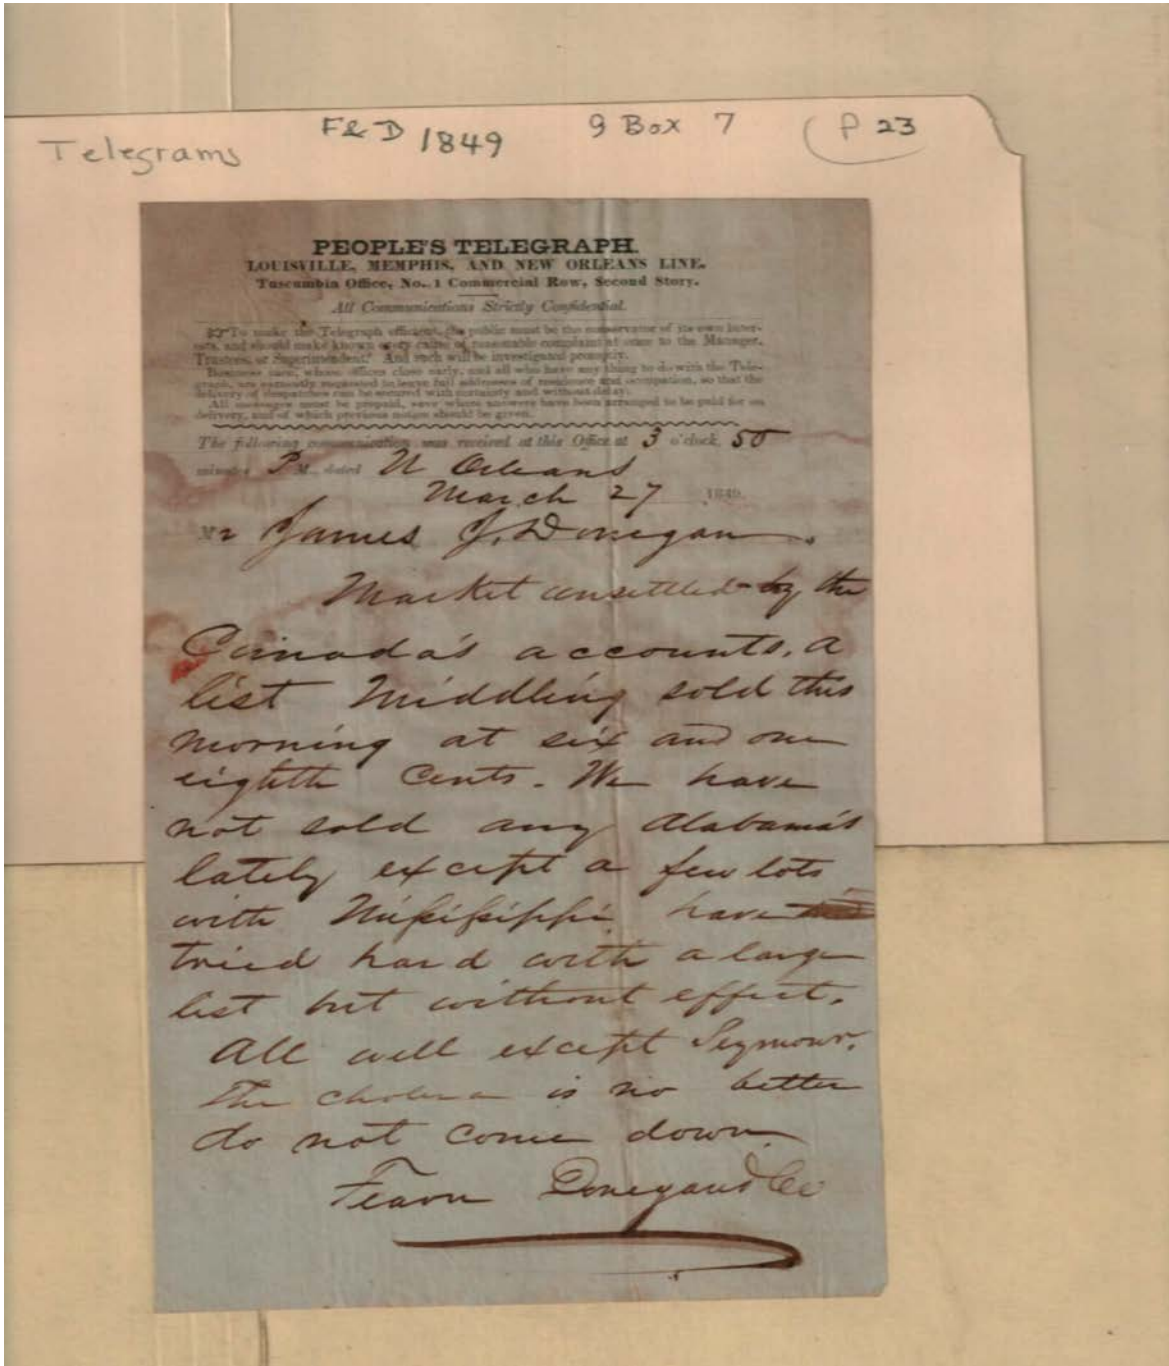 Telegrams F&D 1849 9 Box 7 P 23
PEOPLE'S TELEGRAPH.
LOUISVILLE, MEMPHIS, AND NEW ORLEANS LINE.
Tuscumbia Office, No. 1 Commercial Row, Second Story.
All Communications Strictly Confidential.
To make the Telegraph efficient, the public must be the conservator of its own inter-
ests, and should make known every cause of reasonable complaint at once to the Manager,
Trustees, or Superintendent. And such will be investigated promptly.
Business men, whose offices close early, and all who have any thing to do with the Tele-
graph, are earnestly requested to leave full addresses of residence and occupation, so that the
delivery of despatches can be secured with certainty and without delay.
All messages must be prepaid, save where answers have been arranged to be paid for on
delivery, and of which previous notice should be given.
The following communication was received at this Office at 3 o'clock, 50
minutes P M., dated N Orleans
March 27 1849.
Mr James J. Donegan.
Market unsettled by the
Canada's accounts. A
list Middling sold this
morning at six and one
eighth cents. We have
not sold any Alabama's
lately except a few lots
with Mississippi have
tried hard with a large
list but without effect.
All well except Seymour.
The cholera is no better
do not come down.
Fearn Donegan & Co